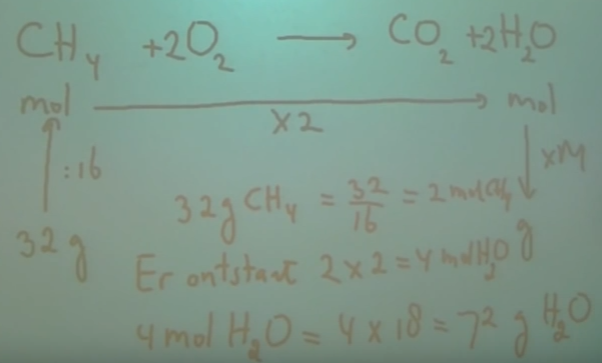 CH₄ +2O₂ → CO₂ +2H₂O
mol → mol
×2
:16 ×M
32g CH₄ = 32/16 = 2 mol CH₄
32 g g
Er ontstaat 2×2=4 mol H₂O
4 mol H₂O = 4×18 = 72 g H₂O